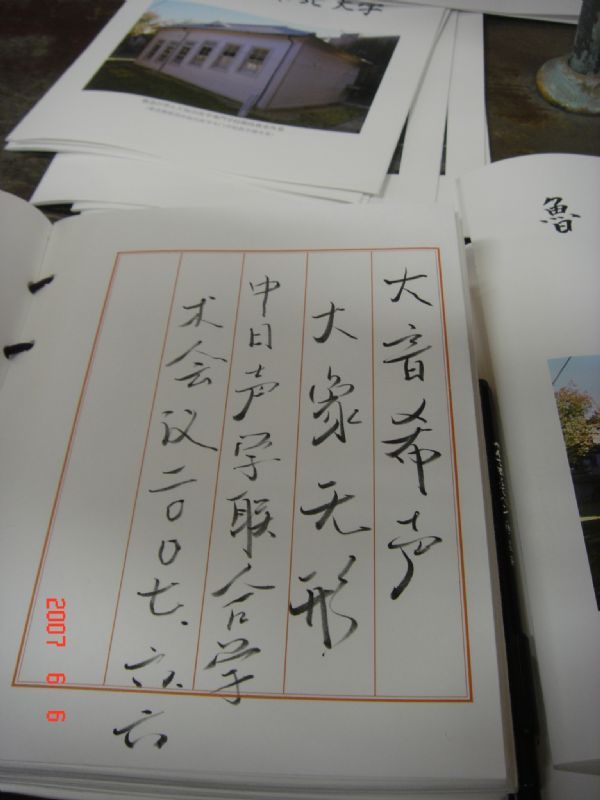 北大学
魯
大音希声
大象无形
中日声学联合学
术会议二〇〇七、六、六
2007 6 6